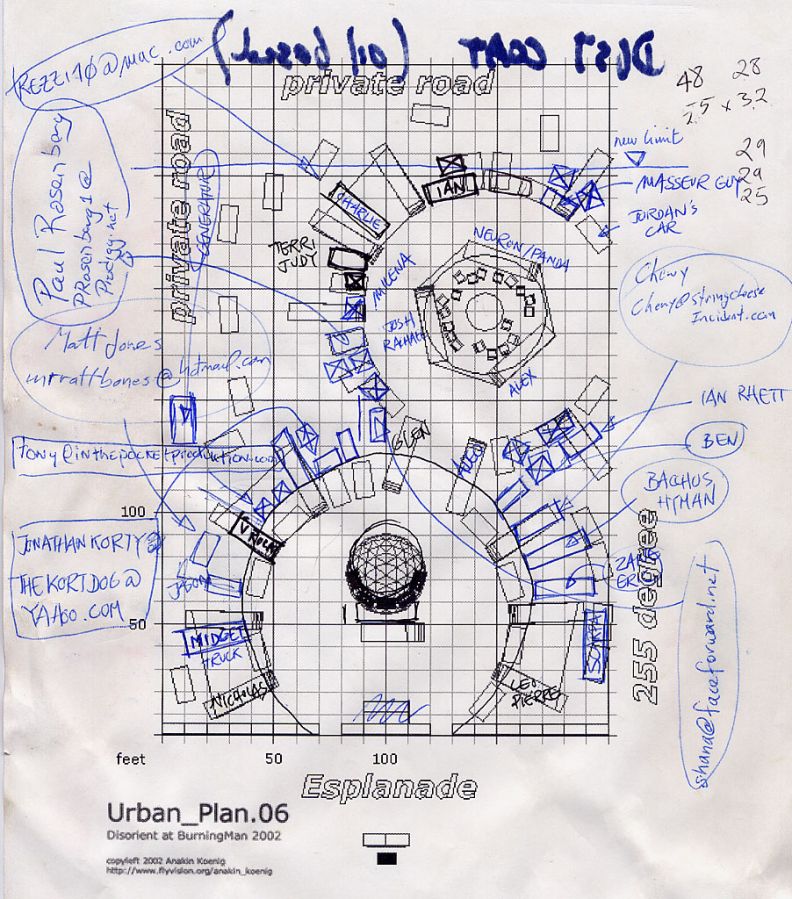 DUST COAT (oil based)
TREZZI10@mac.com
private road
48 28
2.5 x 3.2
new limit
29
29
25
private road
GENERATOR
Paul Rosenberg
PRosenburg1@
Prodigy.net
CHARLIE
IAN
MASSEUR GUY
JORDAN'S
CAR
TERRI
JUDY
MILENA
NEURON/PANDA
JOSH
RACHAEL
ALEX
Chewy
Chewy@stringcheese
Incident.com
Matt Jones
mrrattbones@hotmail.com
IAN RHETT
BEN
GLEN
Tony@inthepocketproduction.com
BACHUS
HYMAN
100
VROOM
JONATHAN KORTY
THEKORTDOG@
YAHOO.COM
JASON
ZACK
ERIC
255 degree
50
MIDGET
TRUCK
NICHOLAS
LEO
PIERRE
shana@faceforward.net
feet 50 100
Esplanade
Urban_Plan.06
Disorient at BurningMan 2002
copyleft 2002 Anakin Koenig
http://www.flyvision.org/anakin_koenig